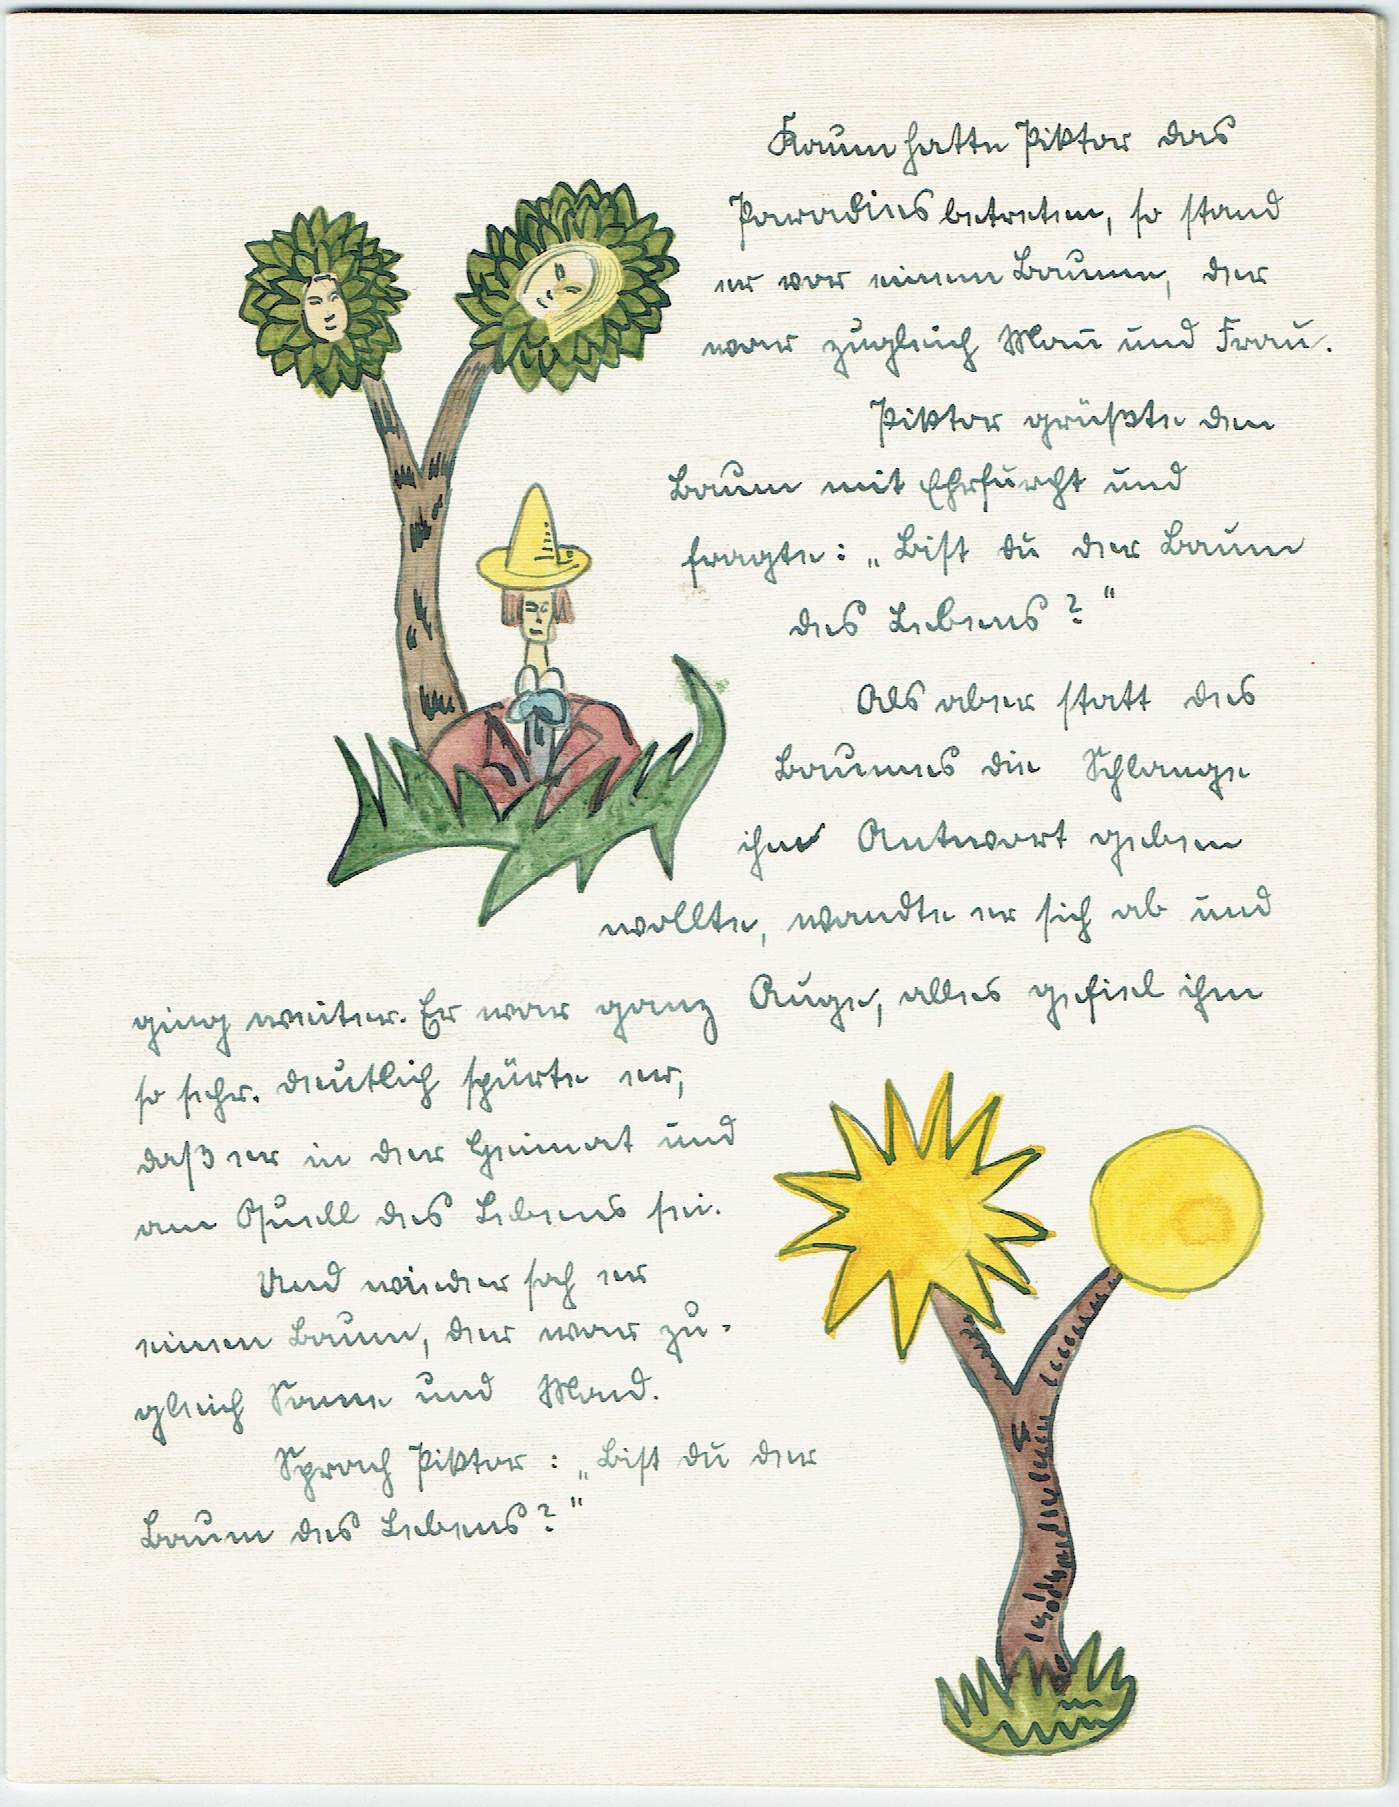 Kaum hatte Piktor das
Paradies betreten, so stand
er vor einem Baume, der
war zugleich Mañ und Frau.
Piktor grüßte den
Baum mit Ehrfurcht und
fragte: „Bist du der Baum
des Lebens?“
Als aber statt des
Baumes die Schlange
ihm Antwort geben
wollte, wandte er sich ab und
ging weiter. Er war ganz Auge, alles gefiel ihm
so sehr. Deutlich spürte er,
daß er in der Heimat und
am Quell des Lebens sei.
Und wieder sah er
einen Baum, der war zu-
gleich Sonne und Mond.
Sprach Piktor: „Bist du der
Baum des Lebens?“